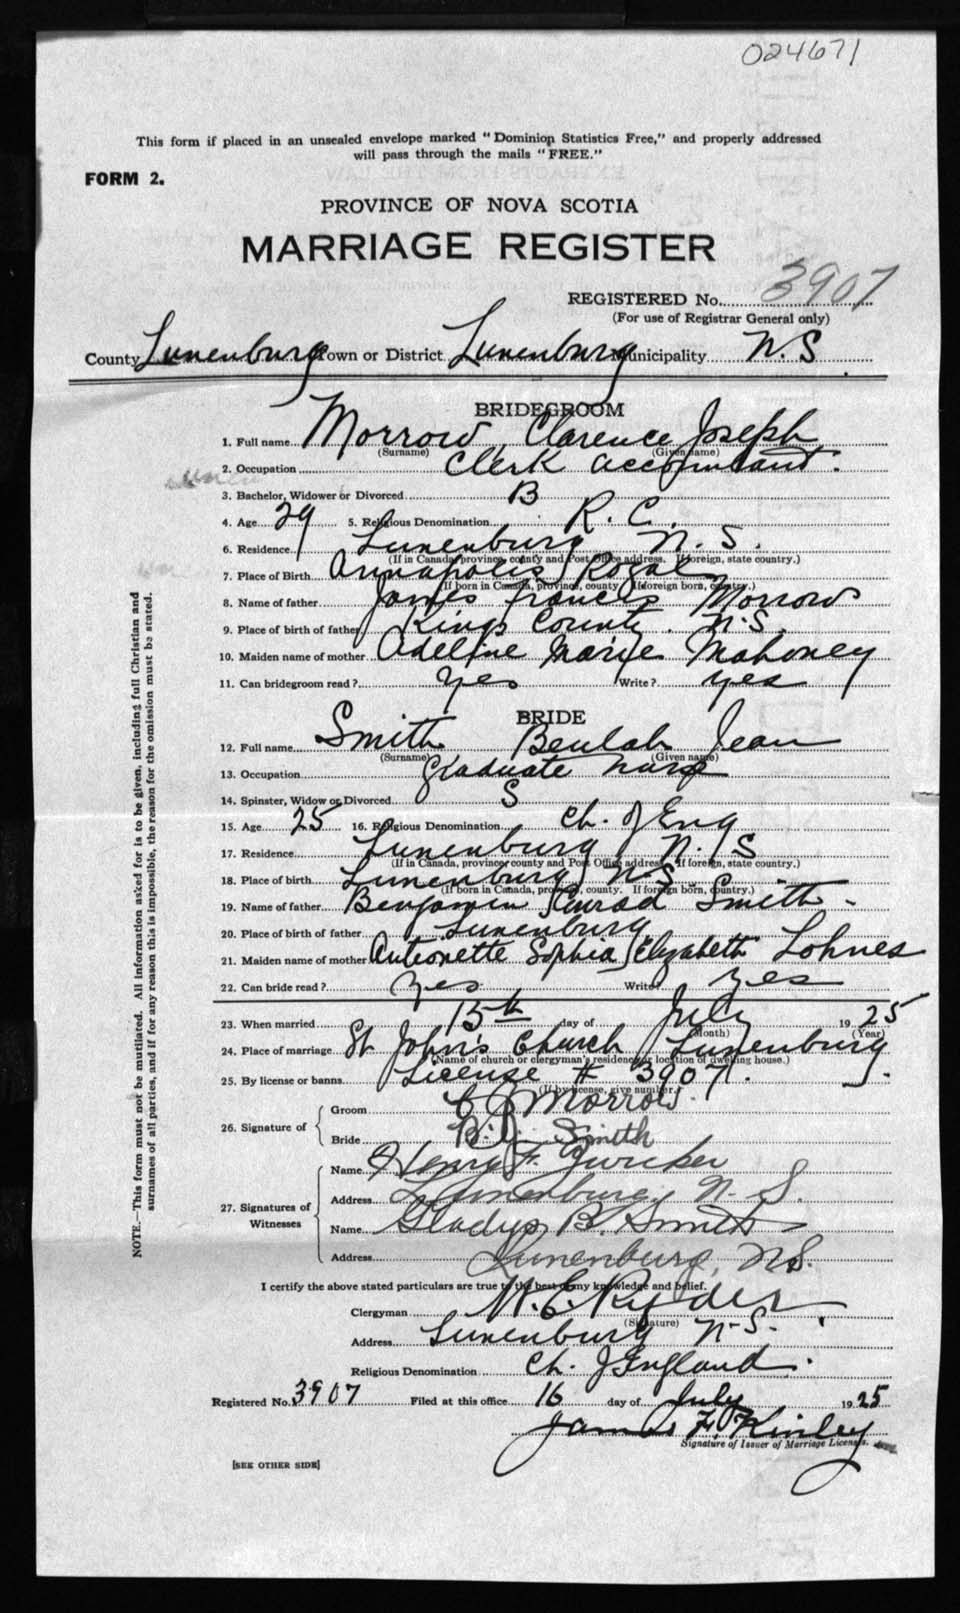 024671
This form if placed in an unsealed envelope marked "Dominion Statistics Free," and properly addressed
will pass through the mails "FREE."
FORM 2.
PROVINCE OF NOVA SCOTIA
MARRIAGE REGISTER
REGISTERED No. 3907
(For use of Registrar General only)
County Lunenburg Town or District Lunenburg Municipality N.S.
BRIDEGROOM
1. Full name Morrow, Clarence Joseph
(Surname) (Given name)
2. Occupation Clerk accountant.
3. Bachelor, Widower or Divorced B
4. Age 29 5. Religious Denomination R. C.
6. Residence Lunenburg N. S.
(If in Canada, province, county and Post Office address. If foreign, state country.)
7. Place of Birth Annapolis Royal
(If born in Canada, province, county. If foreign born, country.)
8. Name of father James Francis Morrow
9. Place of birth of father Kings County. N.S.
10. Maiden name of mother Adeline Marie Mahoney
11. Can bridegroom read? Yes Write? yes
BRIDE
12. Full name Smith Beulah Jean
(Surname) (Given name)
13. Occupation Graduate nurse
14. Spinster, Widow or Divorced S
15. Age 25 16. Religious Denomination Ch. of Eng
17. Residence Lunenburg N. S
(If in Canada, province, county and Post Office address. If foreign, state country.)
18. Place of birth Lunenburg N S
(If born in Canada, province, county. If foreign born, country.)
19. Name of father Benjamin Conrad Smith -
20. Place of birth of father Lunenburg
21. Maiden name of mother Antionette Sophia Elizabeth Lohnes
22. Can bride read? Yes Write? Yes
23. When married 15th day of July 1925
(Month) (Year)
24. Place of marriage St John's Church Lunenburg
(Name of church or clergyman's residence, or location of dwelling house.)
25. By license or banns License # 3907.
(If by license, give number.)
26. Signature of
Groom C J Morrow.
Bride B. J. Smith
27. Signatures of Witnesses
Name Henry F. Zwicker
Address Lunenburg N. S.
Name Gladys B. Smith
Address Lunenburg, NS.
I certify the above stated particulars are true to the best of my knowledge and belief.
Clergyman W. E. Ryder
(Signature)
Address Lunenburg N-S.
Religious Denomination Ch. of England.
Registered No. 3907 Filed at this office 16 day of July 1925
James F. Kinley
Signature of Issuer of Marriage Licenses.
[SEE OTHER SIDE]
NOTE.—This form must not be mutilated. All information asked for is to be given, including full Christian and
surnames of all parties, and if for any reason this is impossible, the reason for the omission must be stated.